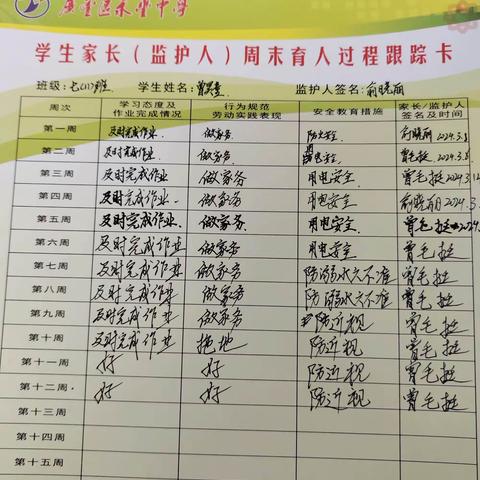 学生家长（监护人）周末育人过程跟踪卡
班级：七(17)班 学生姓名： 监护人签名：俞晓丽
周次 学习态度及作业完成情况 行为规范劳动实践表现 安全教育措施 家长/监护人签名及时间
第一周 及时完成作业 做家务 防火安全 俞晓丽 2024.3.
第二周 及时完成作业 做家务 用电安全 曾毛挺 2024.3.8
第三周 及时完成作业 做家务 用电安全 曾毛挺 2024.3.
第四周 及时完成作业 做家务 用电安全 俞晓丽 2024.3.
第五周 及时完成作业 做家务 用电安全 曾毛挺
第六周 及时完成作业 做家务 用电安全 曾毛挺
第七周 及时完成作业 做家务 防溺水六不准 曾毛挺
第八周 及时完成作业 做家务 防溺水六不准 曾毛挺
第九周 及时完成作业 做家务 防近视 曾毛挺
第十周 及时完成作业 拖地 防近视 曾毛挺
第十一周 好 好 防近视 曾毛挺
第十二周 好 好 防近视 曾毛挺
第十三周
第十四周
第十五周